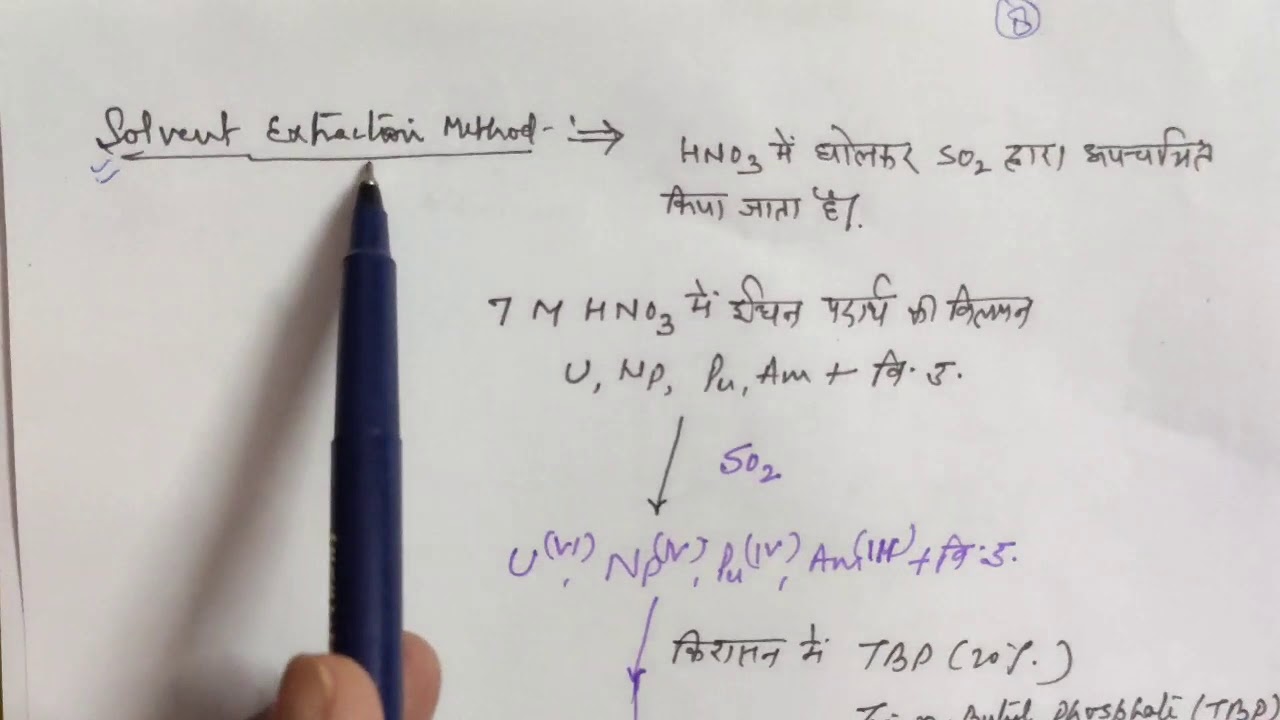 8
Solvent Extraction Method- :⇒
HNO3 में घोलकर SO2 द्वारा अपचयित
किया जाता है।.
7 M HNO3 में ईंधन पदार्थ की विलयन
U, Np, Pu, Am + वि. उ.
SO2
U(VI), Np(IV), Pu(IV), Am(III) + वि. उ.
किरासन में TBP (20%.)
Butyl Phosphate (TBP)